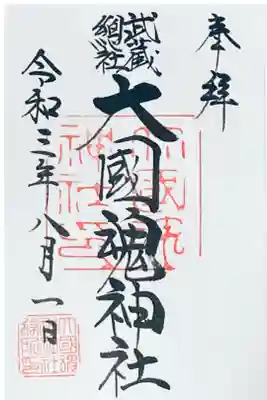 奉拝
武蔵
總社
大國魂神社
令和三年八月一日